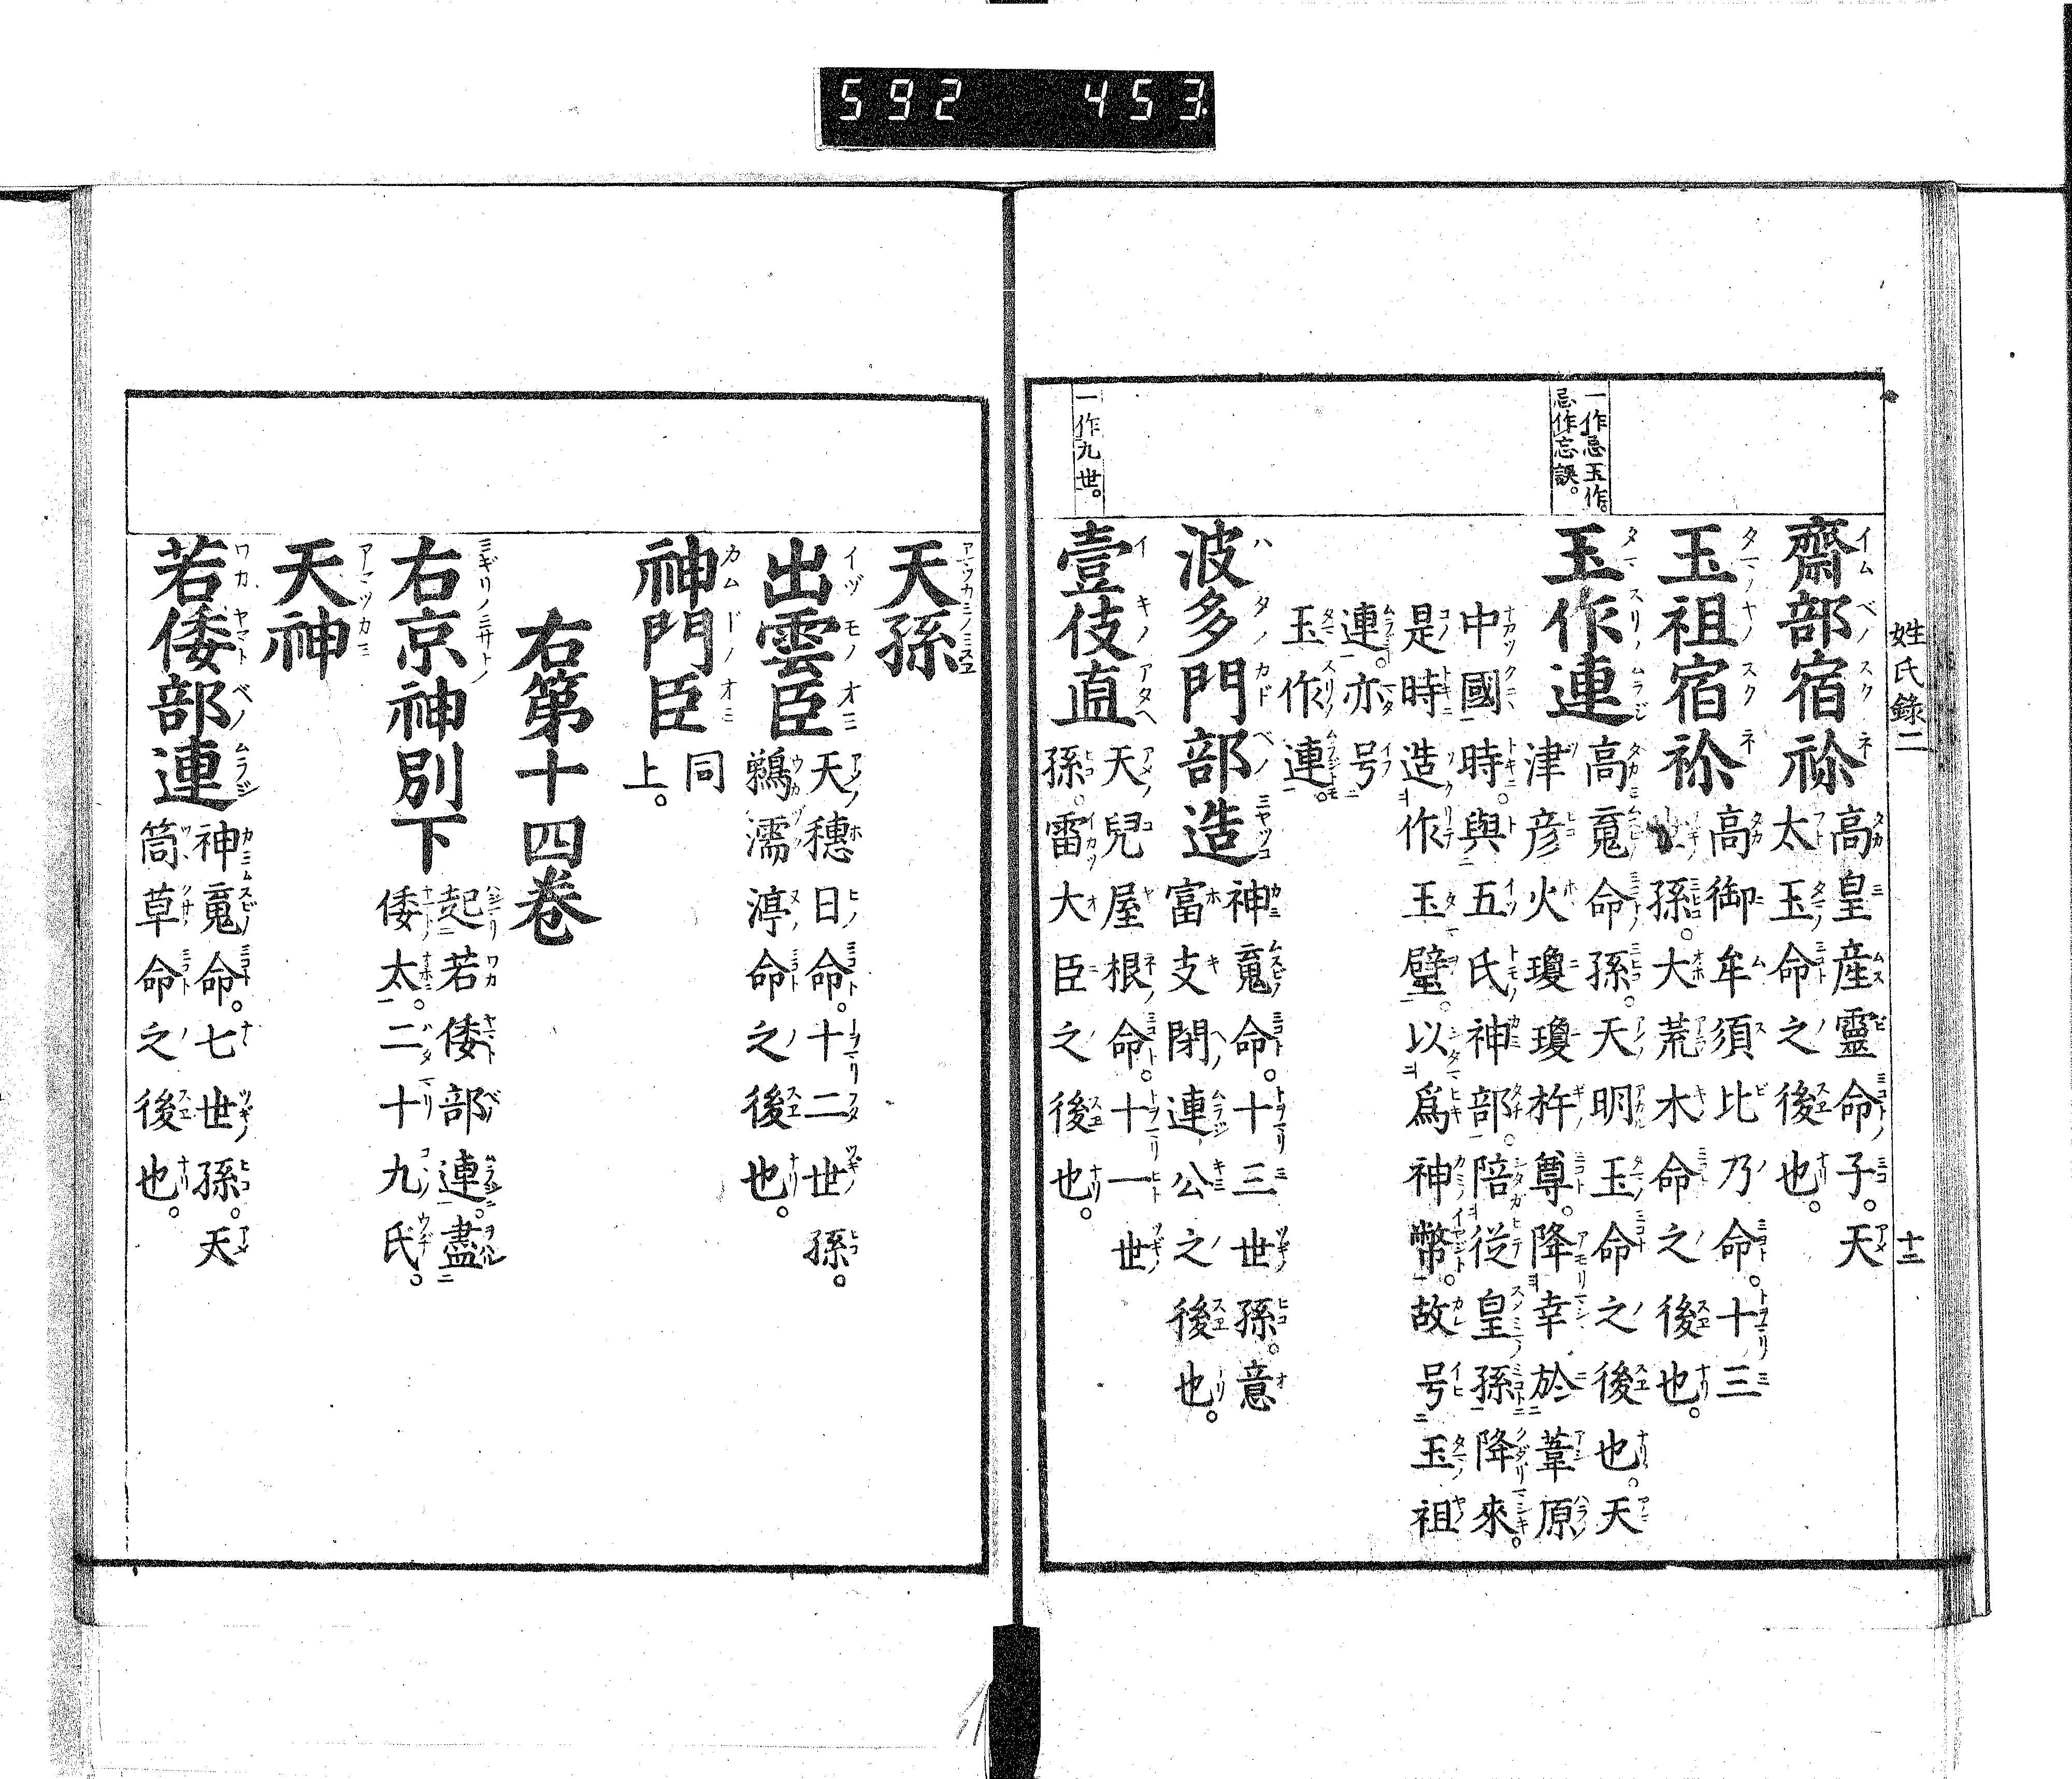 592 453.
姓氏錄二 十三
齋部宿祢 高皇産靈命子。天
太玉命之後也。
玉祖宿祢 高御牟須比乃命。十三
孫。大荒木命之後也。
一作忌玉作。
忌作忘誤。
玉作連 高䰟命孫。天明玉命之後也。天
津彦火瓊瓊杵尊。降幸於葦原
中國時。與五氏神部。陪從皇孫降來。
是時造作玉璧。以爲神幣。故号玉祖
連。亦号
玉作連。
波多門部造 神䰟命。十三世孫。意
富支閇連公之後也。
一作九世。
壹伎直 天兒屋根命。十一世
孫。雷大臣之後也。
天孫
出雲臣 天穗日命。十二世孫。
鵜濡渟命之後也。
神門臣 同
上。
右第十四卷
右京神別下 起若倭部連。盡
倭太。二十九氏。
天神
若倭部連 神䰟命。七世孫。天
筒草命之後也。